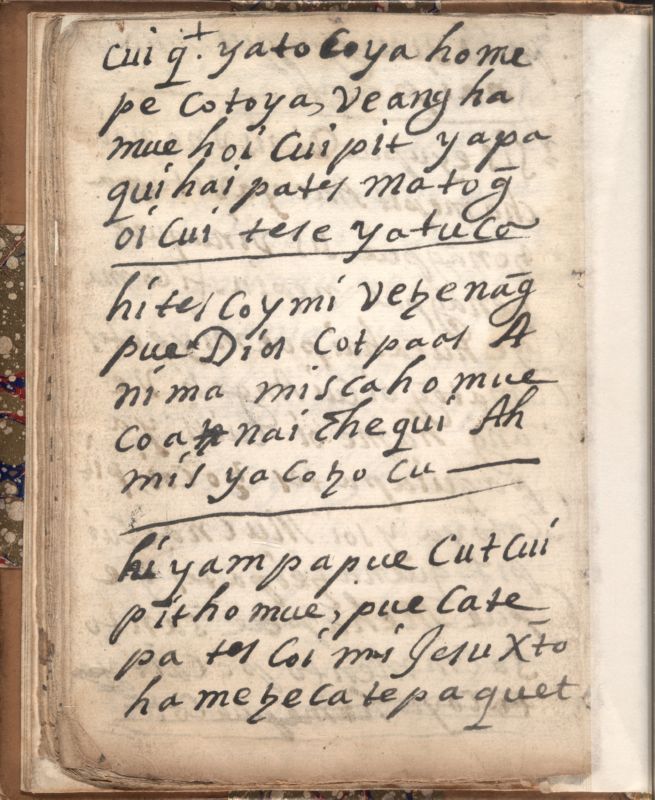 cui q̄. yato coya home
pe cotoya, veang ha
mue hoi cuipit yapa
quihai pates matog̃
oi cui tese yatuco
hites coymi veꜩenag̃
pue Dios cotpaas A
nima miscahomue
coa nai c̃hequi Ah
mis yacoꜩo cu
hiyampapue cutcui
pithomue, pue cate
pa tes coi mi Jesu Xp̄to
hameꜩecatepaquet